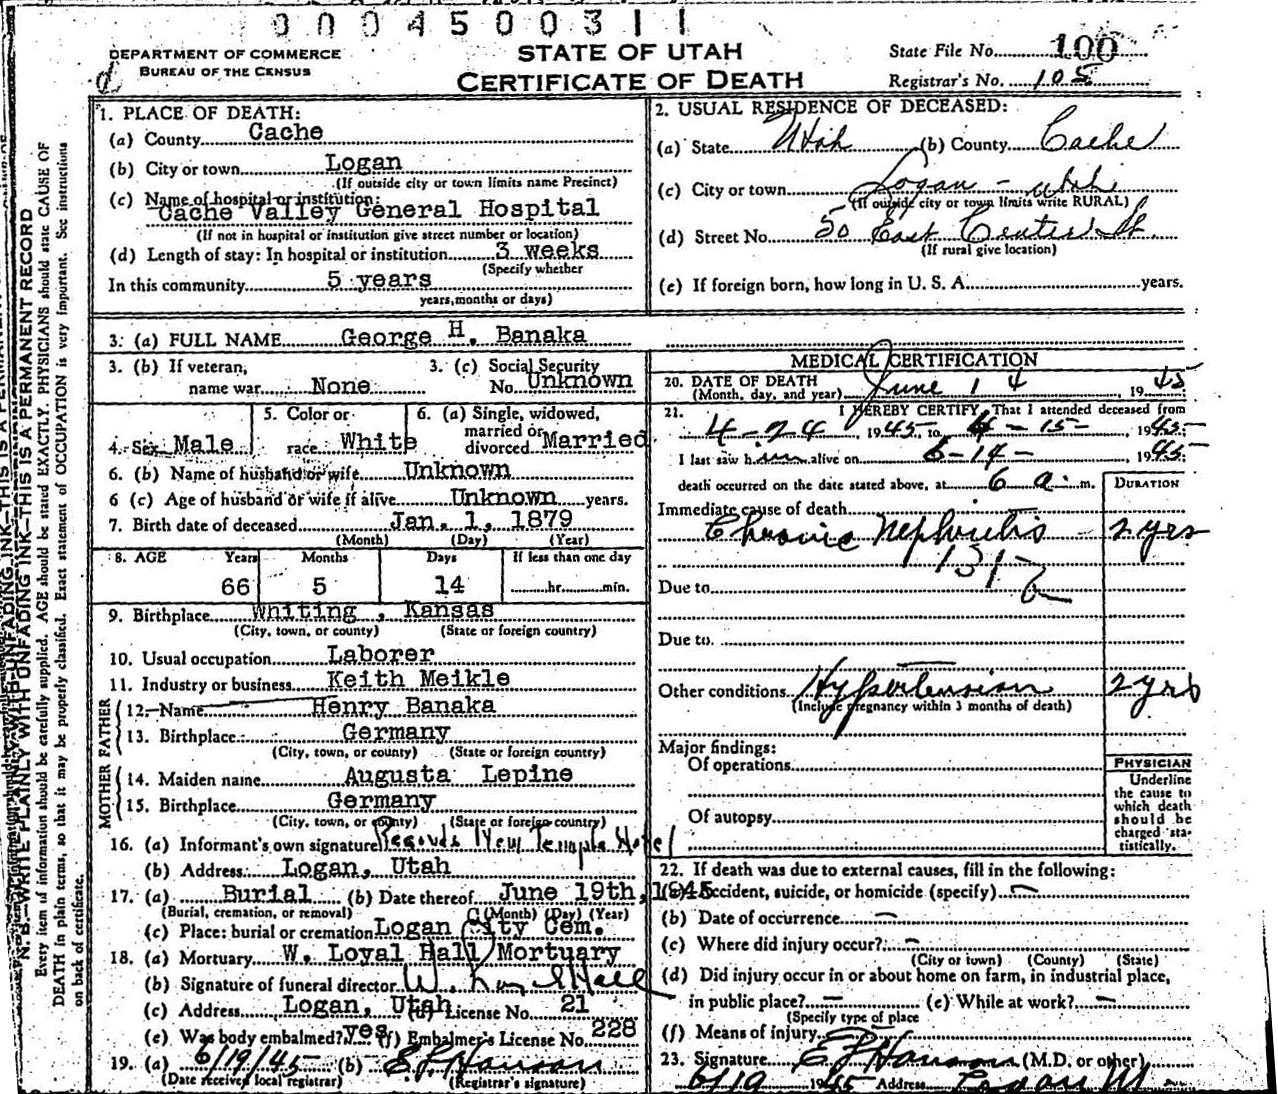 0004500311
DEPARTMENT OF COMMERCE
BUREAU OF THE CENSUS
STATE OF UTAH
CERTIFICATE OF DEATH
State File No. 100
Registrar's No. 105
N. B.—WRITE PLAINLY WITH UNFADING INK—THIS IS A PERMANENT RECORD
Every item of information should be carefully supplied. AGE should be stated EXACTLY. PHYSICIANS should state CAUSE OF
DEATH in plain terms, so that it may be properly classified. Exact statement of OCCUPATION is very important. See instructions
on back of certificate.
1. PLACE OF DEATH:
(a) County Cache
(b) City or town Logan
(If outside city or town limits name Precinct)
(c) Name of hospital or institution:
Cache Valley General Hospital
(If not in hospital or institution give street number or location)
(d) Length of stay: In hospital or institution 3 weeks
(Specify whether
In this community 5 years
years, months or days)
2. USUAL RESIDENCE OF DECEASED:
(a) State Utah (b) County Cache
(c) City or town Logan - Utah
(If outside city or town limits write RURAL)
(d) Street No. 50 East Center St.
(If rural give location)
(e) If foreign born, how long in U. S. A. years.
3. (a) FULL NAME George H. Banaka
3. (b) If veteran, name war None
3. (c) Social Security No. Unknown
4. Sex Male
5. Color or race White
6. (a) Single, widowed, married or divorced Married
6. (b) Name of husband or wife Unknown
6 (c) Age of husband or wife if alive Unknown years.
7. Birth date of deceased Jan. 1, 1879
(Month) (Day) (Year)
8. AGE Years Months Days If less than one day
66 5 14 hr. min.
9. Birthplace Whiting, Kansas
(City, town, or county) (State or foreign country)
10. Usual occupation Laborer
11. Industry or business Keith Meikle
FATHER
12. Name Henry Banaka
13. Birthplace Germany
(City, town, or county) (State or foreign country)
MOTHER
14. Maiden name Augusta Lepine
15. Birthplace Germany
(City, town, or county) (State or foreign country)
16. (a) Informant's own signature Records New Temple Hotel
(b) Address Logan, Utah
17. (a) Burial (b) Date thereof June 19th, 1945
(Burial, cremation, or removal) (Month) (Day) (Year)
(c) Place: burial or cremation Logan City Cem.
18. (a) Mortuary W. Loyal Hall Mortuary
(b) Signature of funeral director W. Loyal Hall
(c) Address Logan, Utah (d) License No. 21
(e) Was body embalmed? yes (f) Embalmer's License No. 228
19. (a) 6/19/45 (b) E. L. Hanson
(Date received local registrar) (Registrar's signature)
MEDICAL CERTIFICATION
20. DATE OF DEATH
(Month, day, and year) June 14 1945
21. I HEREBY CERTIFY, That I attended deceased from
4-24, 1945, to 6-15-, 1945;
I last saw him alive on 6-14-, 1945
death occurred on the date stated above, at 6 a. m.
DURATION
Immediate cause of death
Chronic Nephritis 2 yrs
131 b
Due to
Due to
Other conditions Hypertension 2 yrs
(Include pregnancy within 3 months of death)
Major findings:
Of operations
Of autopsy
PHYSICIAN
Underline
the cause to
which death
should be
charged sta-
tistically.
22. If death was due to external causes, fill in the following:
(a) Accident, suicide, or homicide (specify) —
(b) Date of occurrence —
(c) Where did injury occur? —
(City or town) (County) (State)
(d) Did injury occur in or about home on farm, in industrial place,
in public place? — (e) While at work? —
(Specify type of place
(f) Means of injury
23. Signature E. L. Hanson (M.D. or other)
6/19 1945 Address Logan